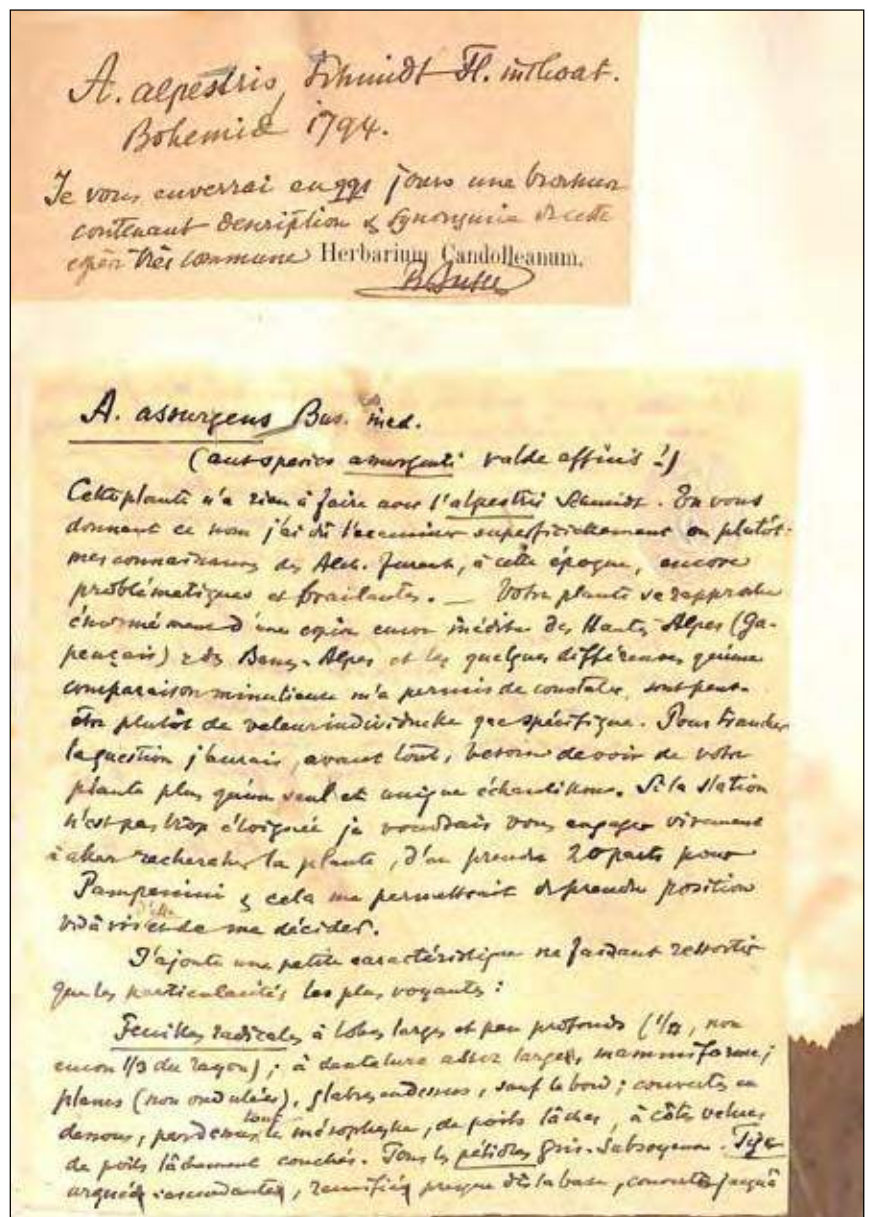 A. alpestris, Schmidt Fl. inchoat.
Bohemiæ 1794.
Je vous enverrai en qqs jours une brochure
contenant description & synonymie de cette
espèce très commune Herbarium Candolleanum.
R Buser
A. assurgens Bus. ined.
(aut species assurgenti valde affinis!)
Cette plante n'a rien à faire avec l'alpestris Schmidt. En vous
donnant ce nom j'ai dû l'examiner superficiellement ou plutôt
mes connaissances des Alch. furent, à cette époque, encore
problématiques et branlantes. — Votre plante se rapproche
énormément d'une espèce encore inédite des Hautes Alpes (Ga-
pençais) & des Basses-Alpes et les quelques différences qu'une
comparaison minutieuse m'a permis de constater, sont peut-
être plutôt de valeur individuelle que spécifique. Pour trancher
la question j'aurais, avant tout, besoin de voir de votre
plante plus qu'un seul et unique échantillons. Si la station
n'est pas trop éloignée je voudrais vous engager vivement
à aller rechercher la plante, d'en prendre 20 parts pour
Pampanini & cela me permettrait de prendre position
vis à vis d'elle et de me décider.
J'ajoute une petite caractéristique ne faisant ressortir
que les particularités les plus voyantes:
Feuilles radicales à lobes larges et peu profonds (non
encore 1/3 du rayon); à dentelure assez large, mammiforme;
planes (non ondulées), glabres en dessus, sauf le bord; couvertes en
dessous, par dessus tout le mésophylle, de poils lâches, à côtes velues
de poils lâchement couchés. Tous les pétioles gris-subsoyeux. Tiges
arquées ascendantes, ramifiées presque dès la base, couvertes jusqu'à